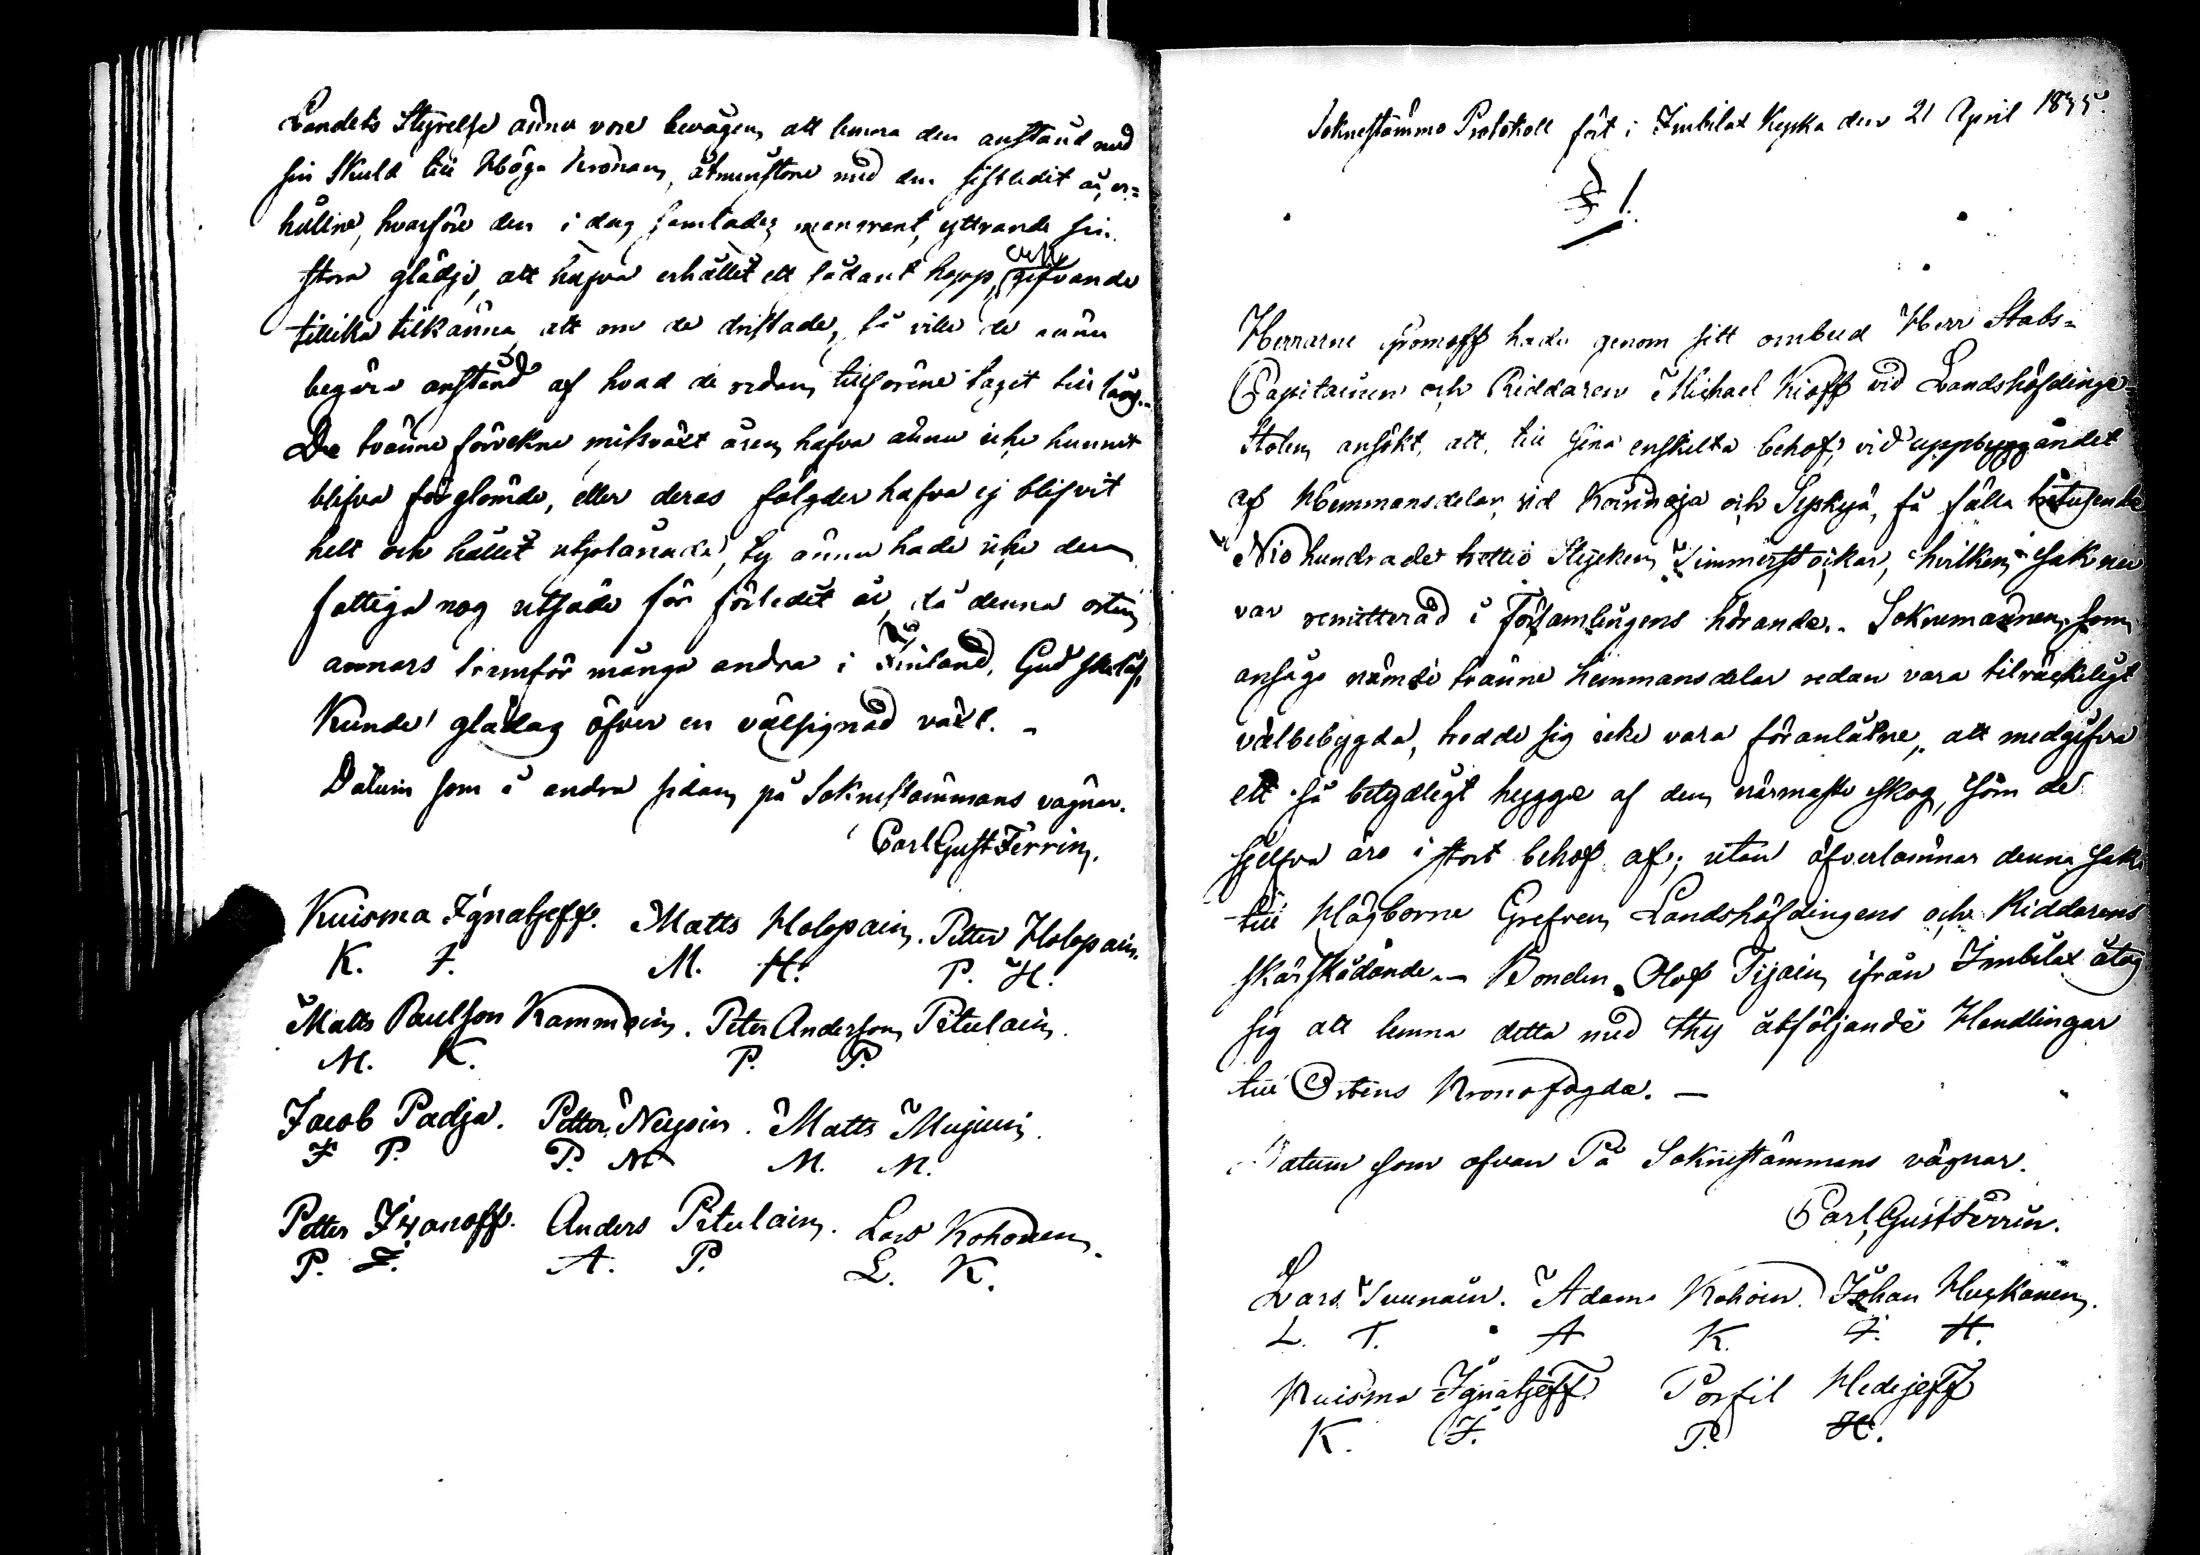 Landets Styrelse ännu vore bevågen, att lemna den anstånd med
sin Skuld till Höga Kronan, åtminstone med den sistledit år, er=
hållne, hvarföre den i dag samlade menerant, yttrande sin
stora glädje, att hafva erhållit ett sådant hopp, gifvande
tillika tilkänna att om de dristade, så ville de ännu
begära anstånd af hvad de redan tillförene tagit till låns.
De tvänne förvekne misväxt åren, hafva ännu icke hunnit
blifva förglömde, eller deras fölgder hafva ej blifvit
helt och hållit utplånade, ty ännu hade icke den
fattiga nog utsäde för förledit år, då denna orten
annars framför många andra i Finland, Gud skelåf,
Kunde glädas öfver en välsignad växt. -
Datum som å andra sidan, på Soknestämmans vägnar.
Carl Gust Ferrin,
Kuisma Ignatjeff. Matts Holopain. Petter Holopain.
K. I. M. H. P. H.
Matts Paulson Kammoin. Peter Anderson Pitulain.
M. K. P. P.
Jacob Padja. Petter Neysin. Matts Mujuin.
J P. P. N M. M.
Petter Iwanoff. Anders Pitulain. Lars Kohonen.
P. I. A. P. L. K.
Soknestämmo Protokoll fört i Imbilax Kyrka den 21 April 1835.
§ 1.
Herrarne Gromoff hade genom sitt ombud Herr Stabs=
Capitainen och Riddaren Michael Kioff vid Landshöfdinge=
Stolen, ansökt, att till sina enskilta behof, vid uppbyggandet
af Hemmansdelar vid Koirinoja och Syskyä, få fälla tretusende
Niohundrade trettio Stycken Timmerstockar, hvilken sak nu
var remitterad i Församlingens hörande. Soknemännen, som
ansågo nämde tvänne hemmansdelar redan vara tilräckeligt
välbebygda, trodde sig icke vara föranlåtne, att medgifva
ett så betydligt hygge af den närmaste skog, som de
sjelfva äro i stort behof af; utan öfverlämnar denna sak
till Högborne Grefven, Landshöfdingens och Riddarens
skärskådande. - Bonden Olof Tijain ifrån Imbilax åtog
sig att lemna detta med thy åtföljande Handlingar
till Ortens Kronofogde. -
Datum som ofvan På Soknestämmans vägnar.
Carl Gust Ferrin.
Lars Tuunain. Adam Kohoin. Johan Huskonen.
L. T. A K. J. H.
Kuisma Ignatjeff Porfil Hedejeff
K. I. P. H.